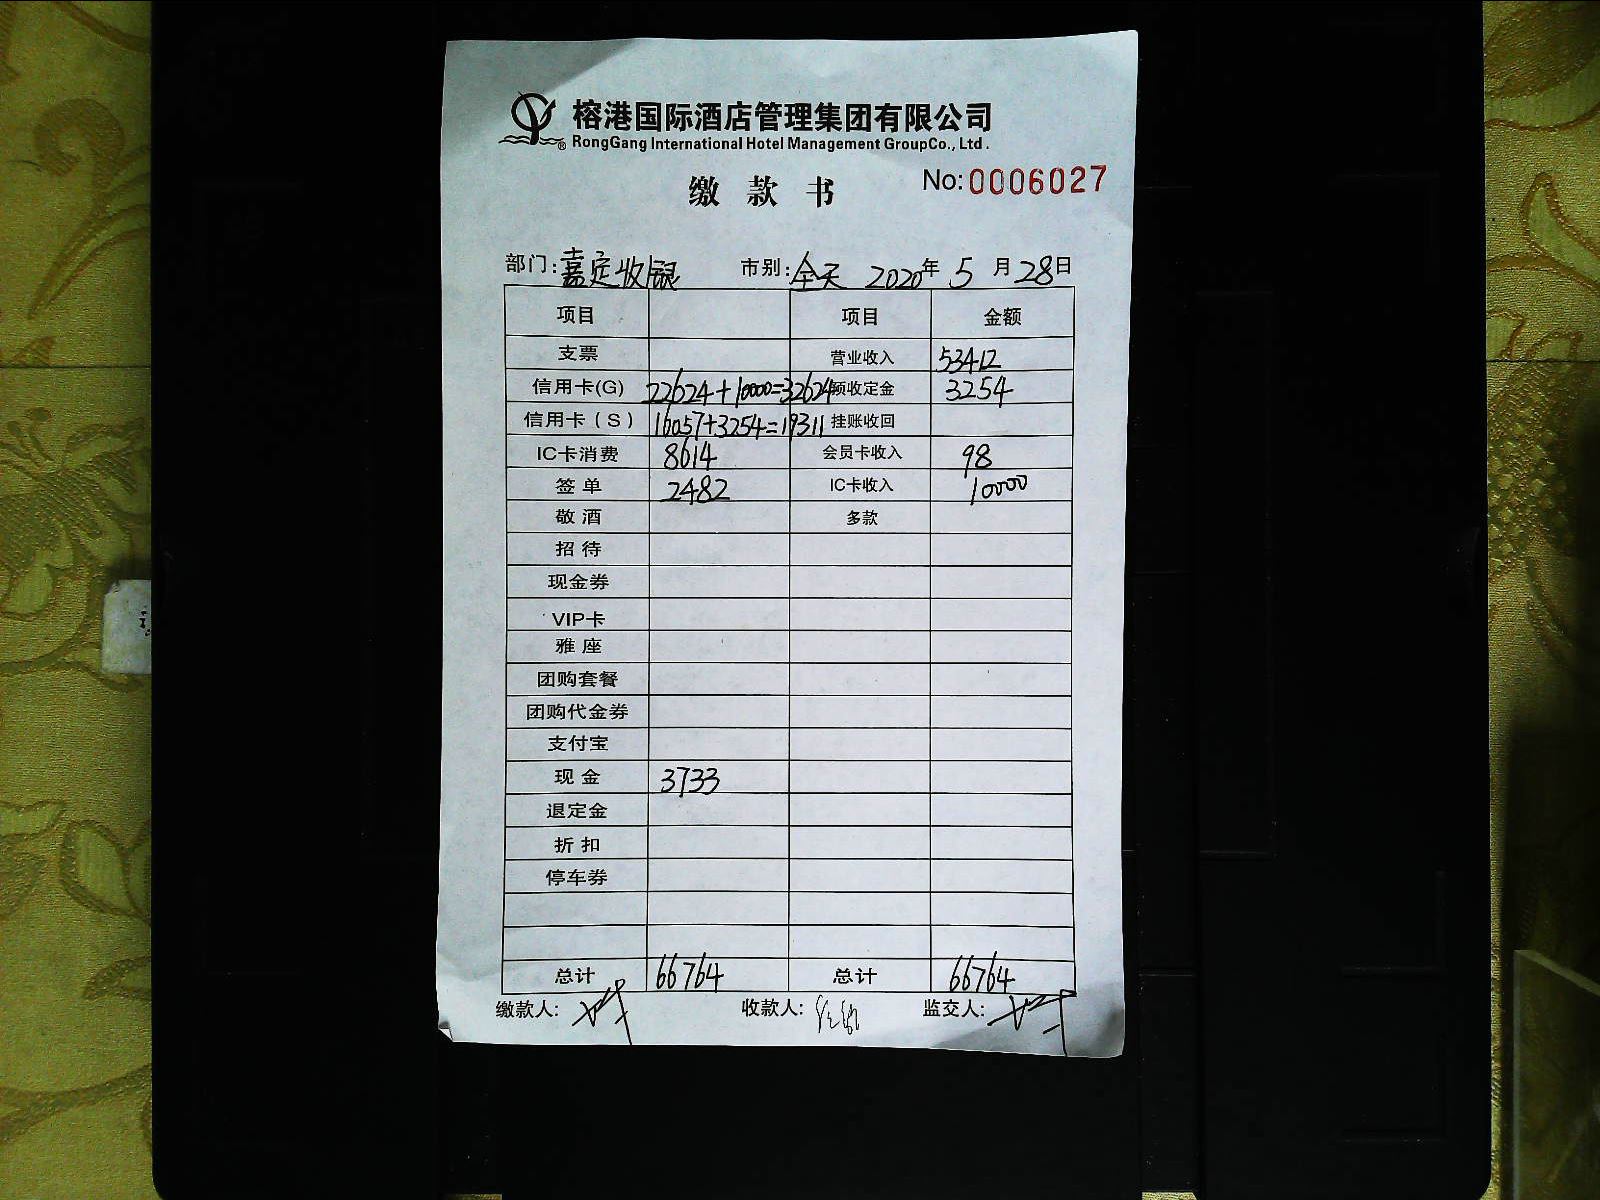 榕港国际酒店管理集团有限公司
RongGang International Hotel Management GroupCo., Ltd.
缴 款 书
No:0006027
部门:嘉定收银 市别:全天 2020年5月28日
项目 项目 金额
支票 营业收入 53412
信用卡(G) 22624+10000=32624 预收定金 3254
信用卡(S) 16057+3254=19311 挂账收回
IC卡消费 8614 会员卡收入 98
签单 2482 IC卡收入 10000
敬酒 多款
招待
现金券
VIP卡
雅座
团购套餐
团购代金券
支付宝
现金 3733
退定金
折扣
停车券
总计 66764 总计 66764
缴款人: 收款人: 监交人: